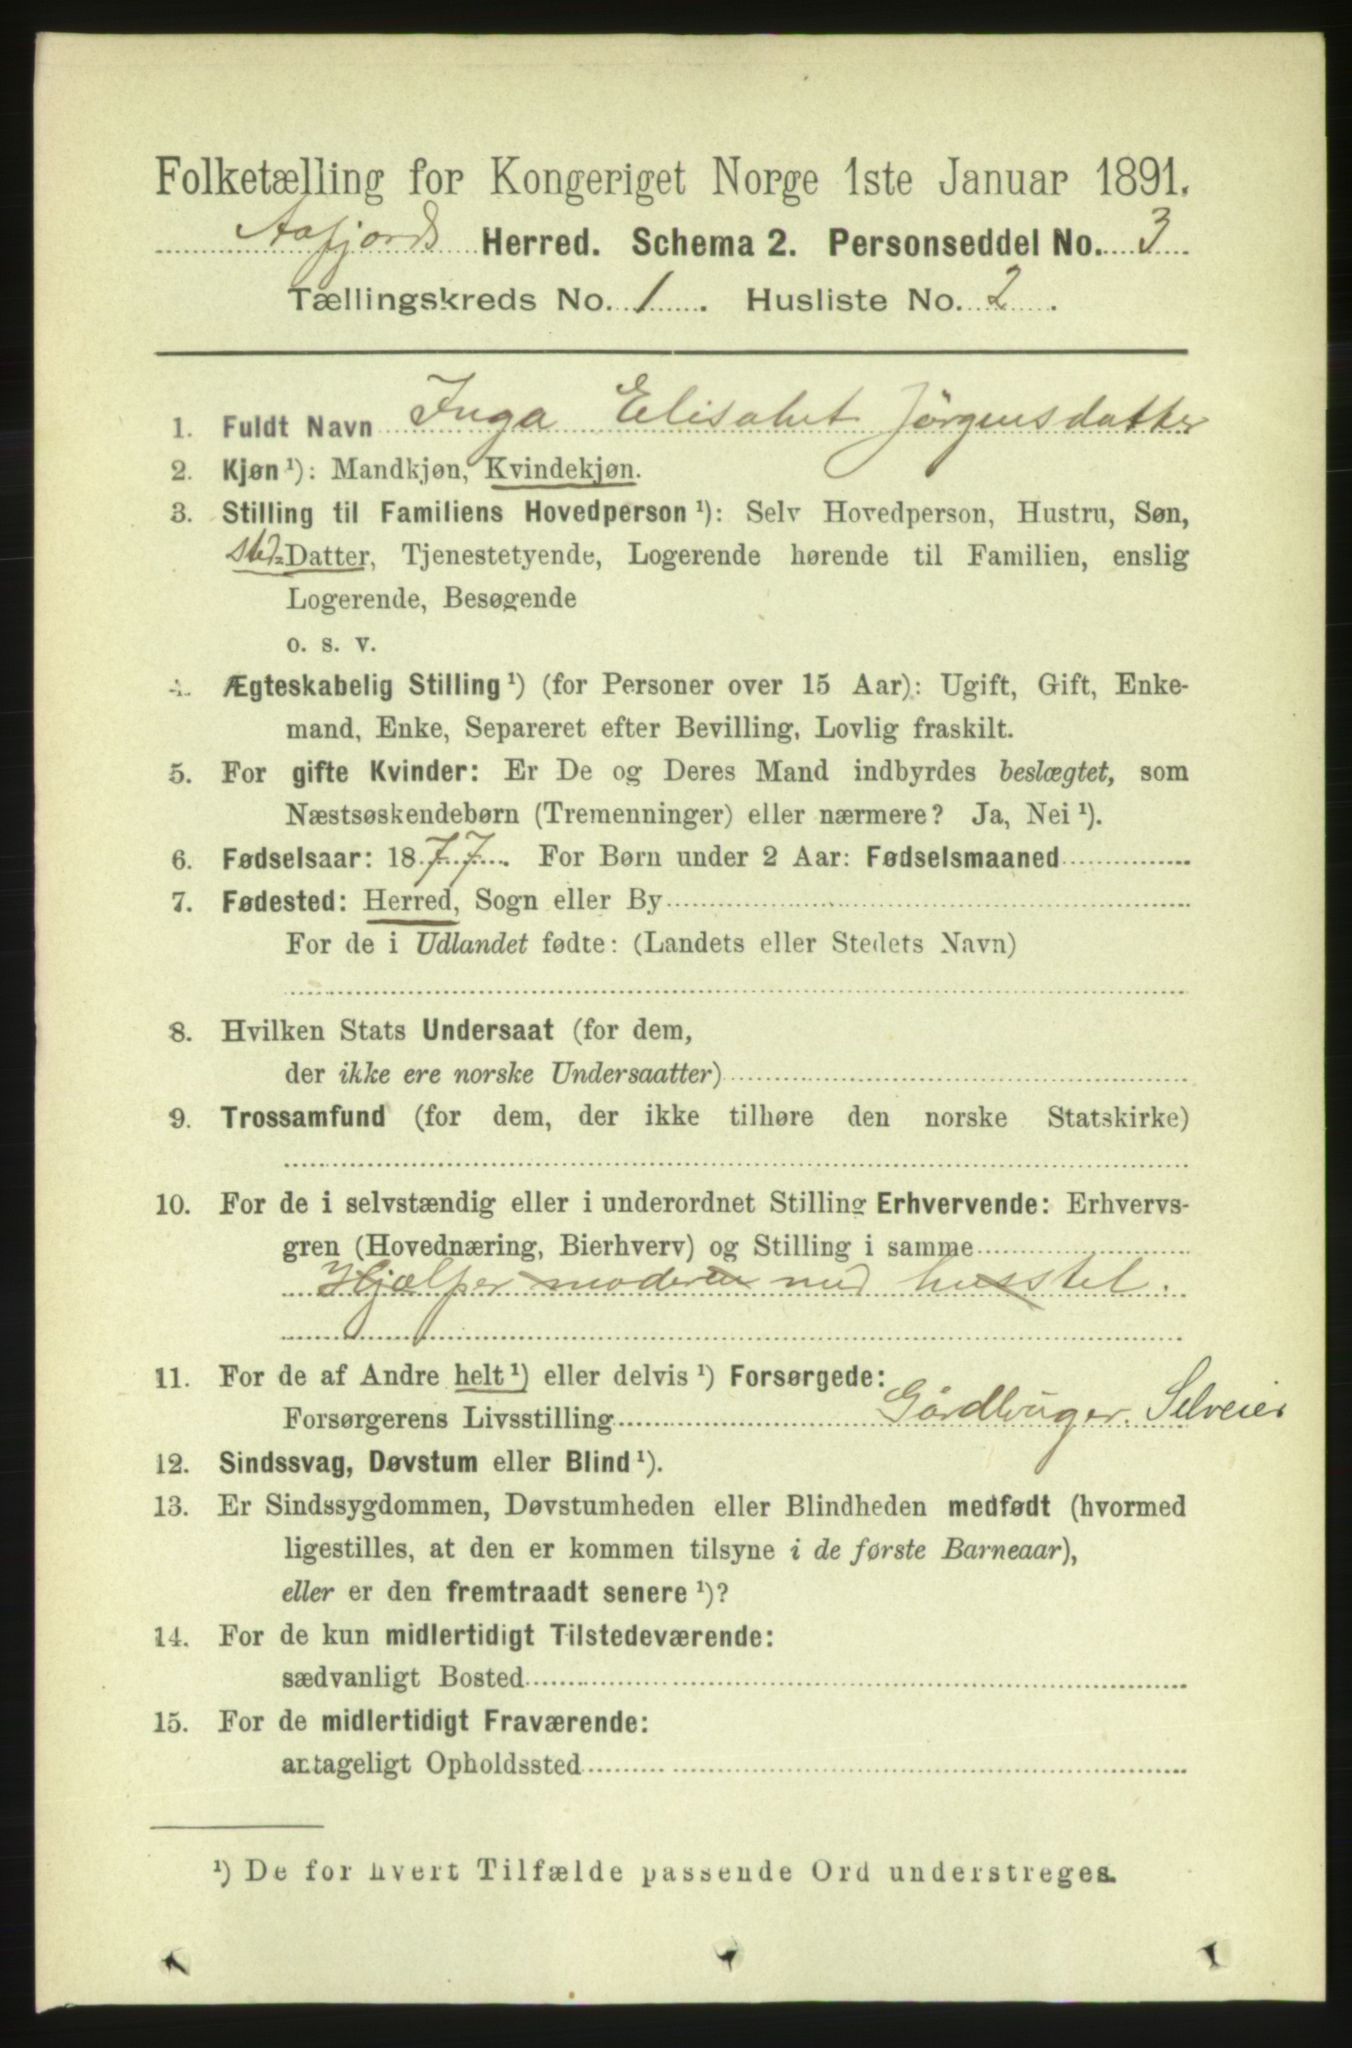 Folketælling for Kongeriget Norge 1ste Januar 1891.
Aafjords Herred. Schema 2. Personseddel No. 3
Tællingskreds No. 1. Husliste No. 2.
1. Fuldt Navn Inga Elisabet Jørgensdatter
2. Kjøn ¹): Mandkjøn, Kvindekjøn.
3. Stilling til Familiens Hovedperson ¹): Selv Hovedperson, Hustru, Søn,
sted- Datter, Tjenestetyende, Logerende hørende til Familien, enslig
Logerende, Besøgende
o. s. v.
4. Ægteskabelig Stilling ¹) (for Personer over 15 Aar): Ugift, Gift, Enke-
mand, Enke, Separeret efter Bevilling, Lovlig fraskilt.
5. For gifte Kvinder: Er De og Deres Mand indbyrdes beslægtet, som
Næstsøskendebørn (Tremenninger) eller nærmere? Ja, Nei ¹).
6. Fødselsaar: 1877. For Børn under 2 Aar: Fødselsmaaned
7. Fødested: Herred, Sogn eller By
For de i Udlandet fødte: (Landets eller Stedets Navn)
8. Hvilken Stats Undersaat (for dem,
der ikke ere norske Undersaatter)
9. Trossamfund (for dem, der ikke tilhøre den norske Statskirke)
10. For de i selvstændig eller i underordnet Stilling Erhvervende: Erhvervs-
gren (Hovednæring, Bierhverv) og Stilling i samme
Hjælper moderen med husstel.
11. For de af Andre helt ¹) eller delvis ¹) Forsørgede:
Forsørgerens Livsstilling Gårdbruger. Selveier
12. Sindssvag, Døvstum eller Blind ¹).
13. Er Sindssygdommen, Døvstumheden eller Blindheden medfødt (hvormed
ligestilles, at den er kommen tilsyne i de første Barneaar),
eller er den fremtraadt senere ¹)?
14. For de kun midlertidigt Tilstedeværende:
sædvanligt Bosted
15. For de midlertidigt Fraværende:
antageligt Opholdssted
¹) De for hvert Tilfælde passende Ord understreges.